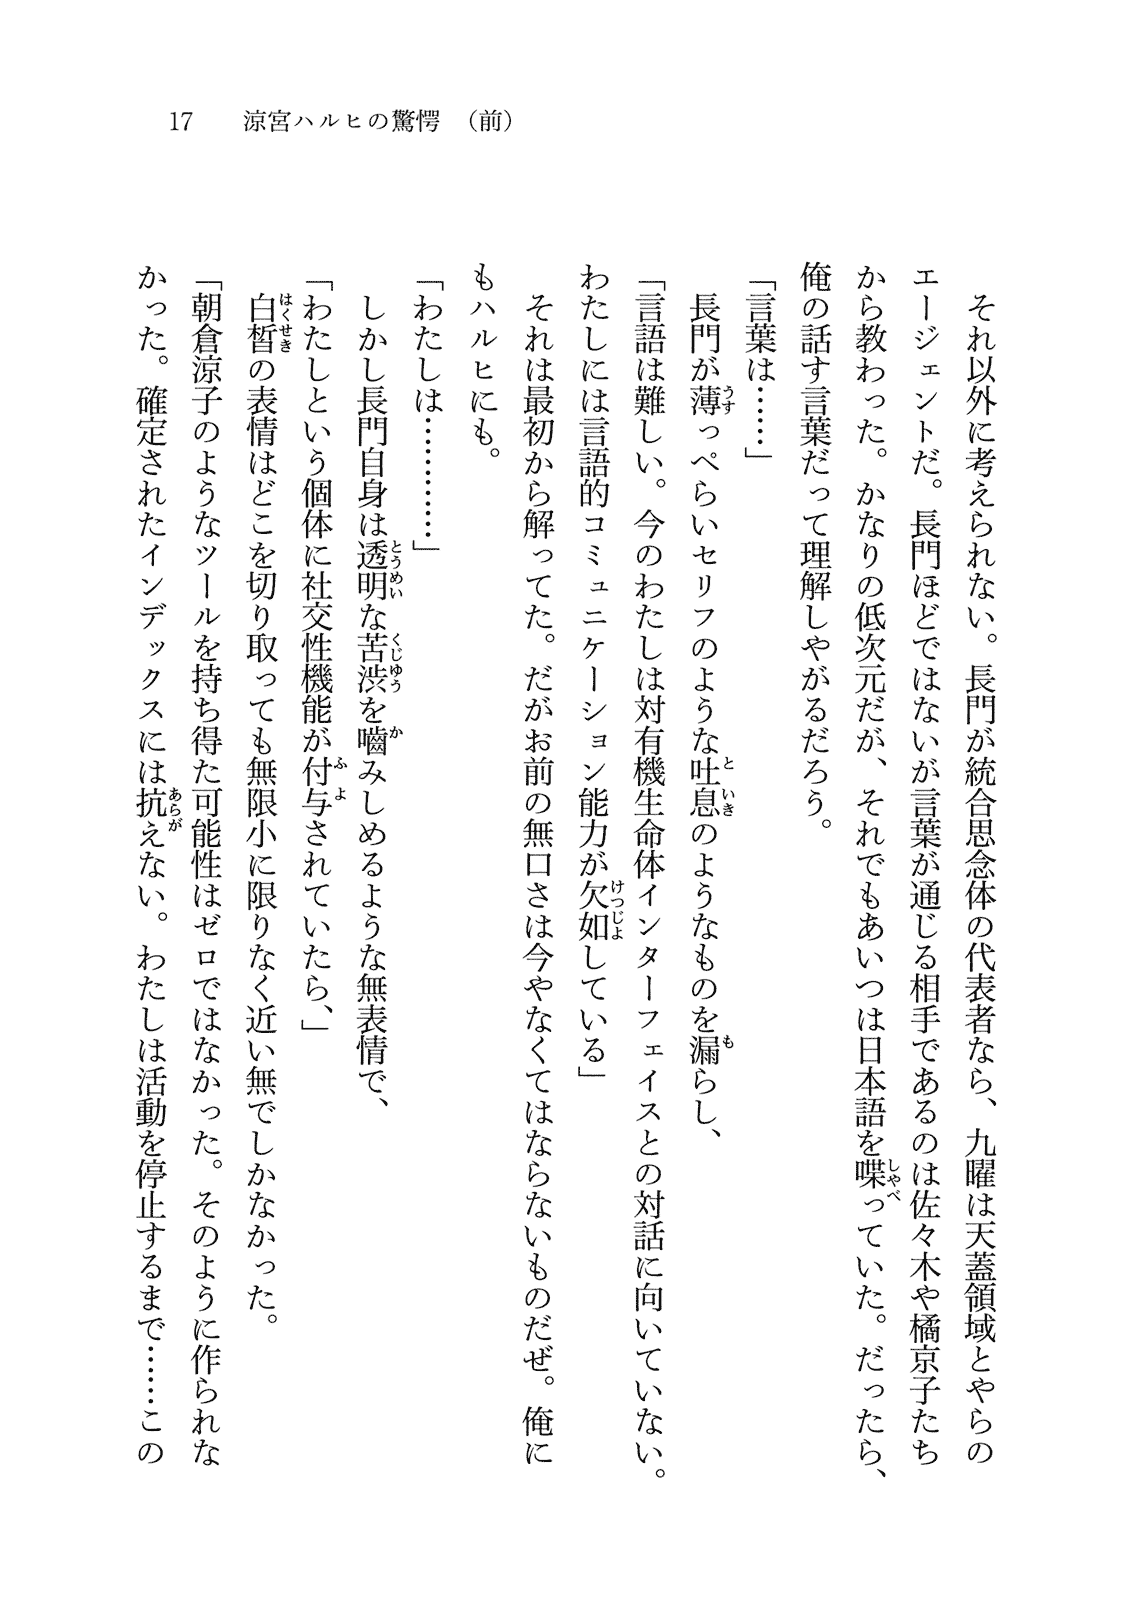 17　涼宮ハルヒの驚愕　（前）
　それ以外に考えられない。長門が統合思念体の代表者なら、九曜は天蓋領域とやらの
エージェントだ。長門ほどではないが言葉が通じる相手であるのは佐々木や橘京子たち
から教わった。かなりの低次元だが、それでもあいつは日本語を喋っていた。だったら、
俺の話す言葉だって理解しやがるだろう。
「言葉は……」
　長門が薄っぺらいセリフのような吐息のようなものを漏らし、
「言語は難しい。今のわたしは対有機生命体インターフェイスとの対話に向いていない。
わたしには言語的コミュニケーション能力が欠如している」
　それは最初から解ってた。だがお前の無口さは今やなくてはならないものだぜ。俺に
もハルヒにも。
「わたしは…………」
　しかし長門自身は透明な苦渋を嚙みしめるような無表情で、
「わたしという個体に社交性機能が付与されていたら、」
　白皙の表情はどこを切り取っても無限小に限りなく近い無でしかなかった。
「朝倉涼子のようなツールを持ち得た可能性はゼロではなかった。そのように作られな
かった。確定されたインデックスには抗えない。わたしは活動を停止するまで……この